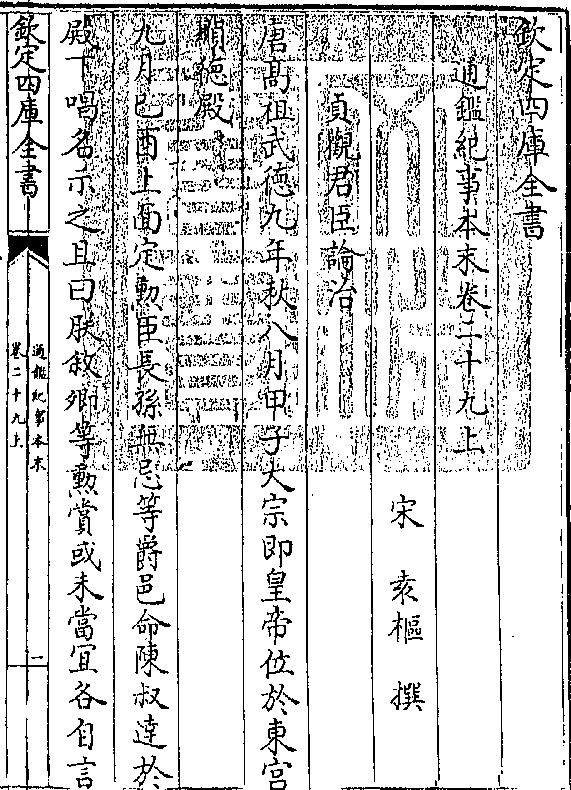 欽定四庫全書
通鑑紀事本末卷二十九上
宋 袁樞 撰
貞觀君臣論治
唐髙祖武徳九年秋八月甲子太宗即皇帝位於東宫
顯徳殿
九月己酉上面定勲臣長孫無忌等爵邑命陳叔達於
殿下唱名示之且曰朕敘卿等勲賞或未當宜各自言
欽定四庫全書
通鑑紀事本末
卷二十九上
一